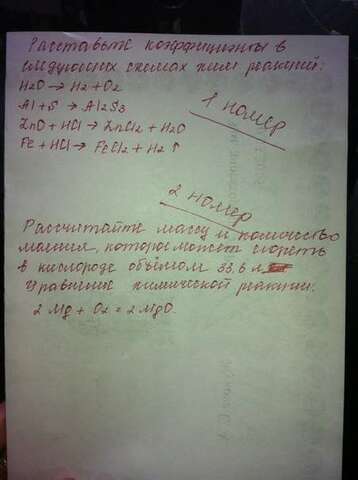 Расставьте коэффициенты в
следующих схемах хим реакций:
H2O → H2 + O2
Al + S → Al2S3
ZnO + HCl → ZnCl2 + H2O
Fe + HCl → FeCl2 + H2 ↑
1 номер
2 номер
Рассчитайте массу и количество
магния, которое может сгореть
в кислороде объёмом 33,6 л
Уравнение химической реакции:
2 Mg + O2 = 2 MgO